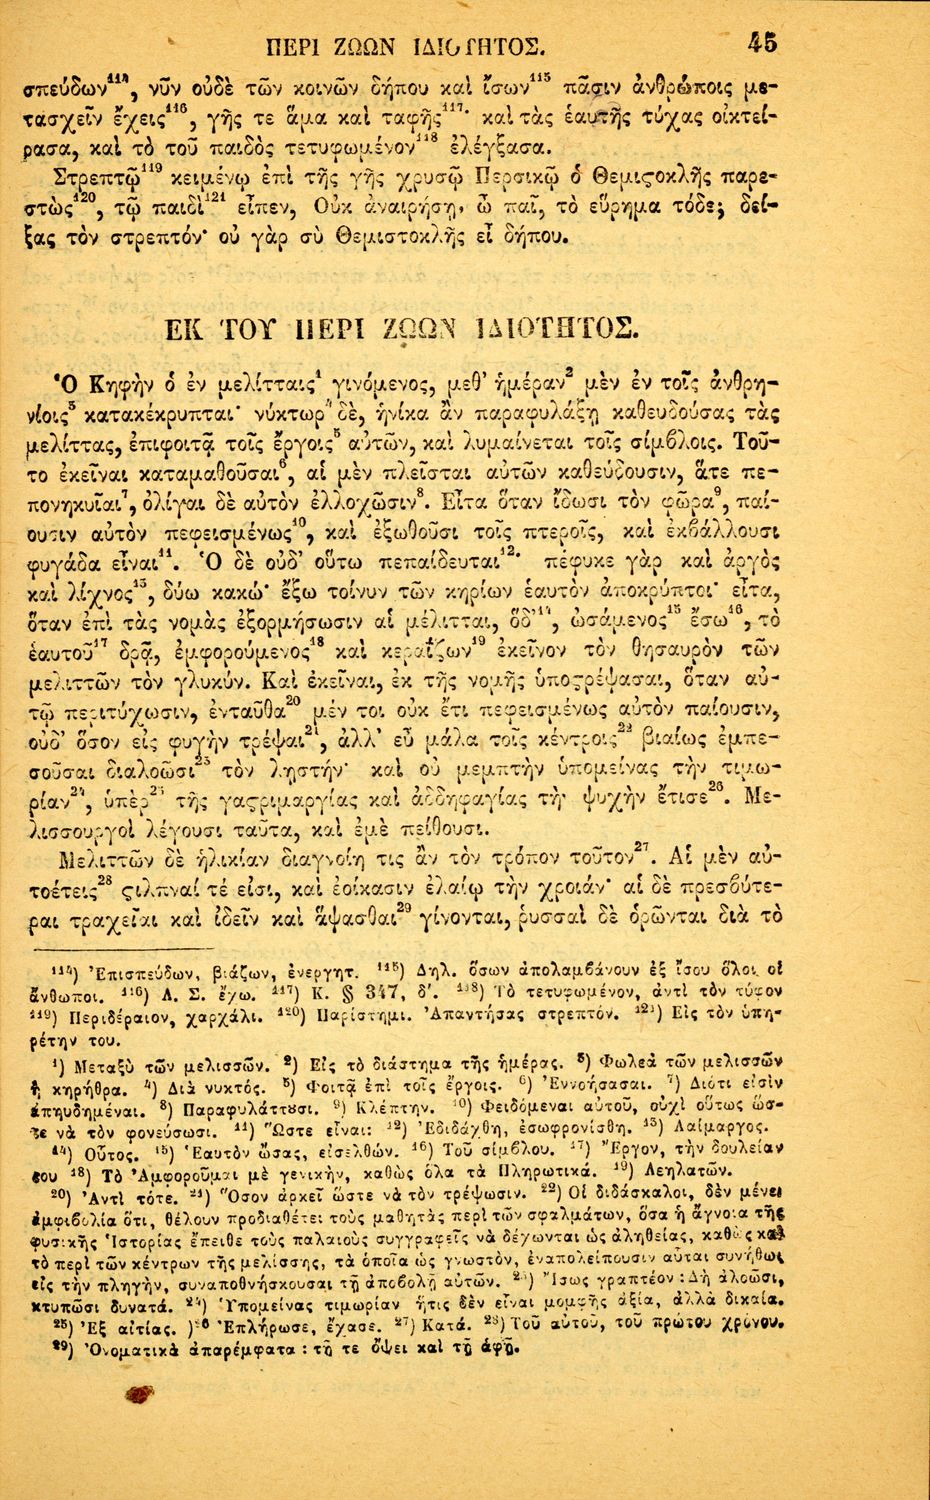 ΠΕΡΙ ΖΩΩΝ ΙΔΙΟΤΗΤΟΣ. 45
σπεύδων¹¹⁴, νῦν οὐδὲ τῶν κοινῶν δήπου καὶ ἴσων¹¹⁵ πᾶσιν ἀνθρώποις με-
τασχεῖν ἔχεις¹¹⁶, γῆς τε ἅμα καὶ ταφῆς¹¹⁷· καὶ τὰς ἑαυτῆς τύχας οἰκτεί-
ρασα, καὶ τὸ τοῦ παιδὸς τετυφωμένον¹¹⁸ ἐλέγξασα.
Στρεπτῷ¹¹⁹ κειμένῳ ἐπὶ τῆς γῆς χρυσῷ Περσικῷ ὁ Θεμιϛοκλῆς παρε-
στὼς¹²⁰, τῷ παιδὶ¹²¹ εἶπεν, Οὐκ ἀναιρήσῃ, ὦ παῖ, τὸ εὕρημα τόδε; δεί-
ξας τὸν στρεπτόν· οὐ γὰρ σὺ Θεμιστοκλῆς εἶ δήπου.
ΕΚ ΤΟΥ ΠΕΡΙ ΖΩΩΝ ΙΔΙΟΤΗΤΟΣ.
Ὁ Κηφὴν ὁ ἐν μελίτταις¹ γινόμενος, μεθ’ ἡμέραν² μὲν ἐν τοῖς ἀνθρη-
νίοις³ κατακέκρυπται· νύκτωρ⁴ δὲ, ἡνίκα ἂν παραφυλάξῃ καθευδούσας τὰς
μελίττας, ἐπιφοιτᾷ τοῖς ἔργοις⁵ αὐτῶν, καὶ λυμαίνεται τοῖς σίμβλοις. Τοῦ-
το ἐκεῖναι καταμαθοῦσαι⁶, αἱ μὲν πλεῖσται αὐτῶν καθεύδουσιν, ἅτε πε-
πονηκυῖαι⁷, ὀλίγαι δὲ αὐτὸν ἐλλοχῶσιν⁸. Εἶτα ὅταν ἴδωσι τὸν φῶρα⁹, παί-
ουσιν αὐτὸν πεφεισμένως¹⁰, καὶ ἐξωθοῦσι τοῖς πτεροῖς, καὶ ἐκβάλλουσι
φυγάδα εἶναι¹¹. Ὁ δὲ οὐδ’ οὕτω πεπαίδευται¹²· πέφυκε γὰρ καὶ ἀργὸς
καὶ λίχνος¹³, δύω κακώ· ἔξω τοίνυν τῶν κηρίων ἑαυτὸν ἀποκρύπτει· εἶτα,
ὅταν ἐπὶ τὰς νομὰς ἐξορμήσωσιν αἱ μέλιτται, ὅδ’¹⁴, ὠσάμενος¹⁵ ἔσω¹⁶, τὸ
ἑαυτοῦ¹⁷ δρᾷ, ἐμφορούμενος¹⁸ καὶ κεραΐζων¹⁹ ἐκεῖνον τὸν θησαυρὸν τῶν
μελιττῶν τὸν γλυκύν. Καὶ ἐκεῖναι, ἐκ τῆς νομῆς ὑποϛρέψασαι, ὅταν αὐ-
τῷ περιτύχωσιν, ἐνταῦθα²⁰ μέν τοι οὐκ ἔτι πεφεισμένως αὐτὸν παίουσιν,
οὐδ’ ὅσον εἰς φυγὴν τρέψαι²¹, ἀλλ’ εὖ μάλα τοῖς κέντροις²² βιαίως ἐμπε-
σοῦσαι διαλοῶσι²³ τὸν ληστήν· καὶ οὐ μεμπτὴν ὑπομείνας τὴν τιμω-
ρίαν²⁴, ὑπὲρ²⁵ τῆς γαϛριμαργίας καὶ ἀδδηφαγίας τὴν ψυχὴν ἔτισε²⁶. Με-
λισσουργοὶ λέγουσι ταῦτα, καὶ ἐμὲ πείθουσι.
Μελιττῶν δὲ ἡλικίαν διαγνοίη τις ἂν τὸν τρόπον τοῦτον²⁷. Αἱ μὲν αὐ-
τοέτεις²⁸ ϛιλπναί τέ εἰσι, καὶ ἐοίκασιν ἐλαίῳ τὴν χροιάν· αἱ δὲ πρεσβύτε-
ραι τραχεῖαι καὶ ἰδεῖν καὶ ἅψασθαι²⁹ γίνονται, ῥυσσαὶ δὲ ὁρῶνται διὰ τὸ
¹¹⁴) Ἐπισπεύδων, βιάζων, ἐνεργητ. ¹¹⁵) Δηλ. ὅσων ἀπολαμβάνουν ἐξ ἴσου ὅλοι οἱ
ἄνθωποι. ¹¹⁶) Λ. Σ. ἔχω. ¹¹⁷) Κ. § 347, δ’. ¹¹⁸) Τὸ τετυφωμένον, ἀντὶ τὸν τύφον
¹¹⁹) Περιδέραιον, χαρχάλι. ¹²⁰) Παρίστημι. Ἀπαντήσας στρεπτόν. ¹²¹) Εἰς τὸν ὑπη-
ρέτην του.
¹) Μεταξὺ τῶν μελισσῶν. ²) Εἰς τὸ διάστημα τῆς ἡμέρας. ³) Φωλεὰ τῶν μελισσῶν
ἢ κηρήθρα. ⁴) Διὰ νυκτός. ⁵) Φοιτᾷ ἐπὶ τοῖς ἔργοις. ⁶) Ἐννοήσασαι. ⁷) Διότι εἰσὶν
ἀπηυδημέναι. ⁸) Παραφυλάττȣσι. ⁹) Κλέπτην. ¹⁰) Φειδόμεναι αὐτοῦ, οὐχὶ οὕτως ὥσ-
τε νὰ τὸν φονεύσωσι. ¹¹) Ὥστε εἶναι: ¹²) Ἐδιδάχθη, ἐσωφρονίσθη. ¹³) Λαίμαργος.
¹⁴) Οὗτος. ¹⁵) Ἑαυτὸν ὤσας, εἰσελθών. ¹⁶) Τοῦ σίμβλου. ¹⁷) Ἔργον, τὴν δουλείαν
του ¹⁸) Τὸ Ἀμφοροῦμαι μὲ γενικὴν, καθὼς ὅλα τὰ Πληρωτικά. ¹⁹) Λεηλατῶν.
²⁰) Ἀντὶ τότε. ²¹) Ὅσον ἀρκεῖ ὥστε νὰ τὸν τρέψωσιν. ²²) Οἱ διδάσκαλοι, δὲν μένει
ἀμφιβολία ὅτι, θέλουν προδιαθέτει τοὺς μαθητὰς περὶ τῶν σφαλμάτων, ὅσα ἡ ἄγνοια τῆς
φυσικῆς Ἱστορίας ἔπειθε τοὺς παλαιοὺς συγγραφεῖς νὰ δέχωνται ὡς ἀληθείας, καθὼς καὶ
τὸ περὶ τῶν κέντρων τῆς μελίσσης, τὰ ὁποῖα ὡς γνωστὸν, ἐναπολείπουσιν αὗται συνήθως
εἰς τὴν πληγὴν, συναποθνήσκουσαι τῇ ἀποβολῇ αὐτῶν. ²³) Ἴσως γραπτέον: Δὴ ἀλοῶσι,
κτυπῶσι δυνατά. ²⁴) Ὑπομείνας τιμωρίαν ἥτις δὲν εἶναι μομφῆς ἀξία, ἀλλὰ δικαία.
²⁵) Ἐξ αἰτίας. )²⁶ Ἐπλήρωσε, ἔχασε. ²⁷) Κατά. ²⁸) Τοῦ αὐτοῦ, τοῦ πρώτου χρόνου.
²⁹) Ὀνοματικὰ ἀπαρέμφατα: τῇ τε ὄψει καὶ τῇ ἁφῇ.